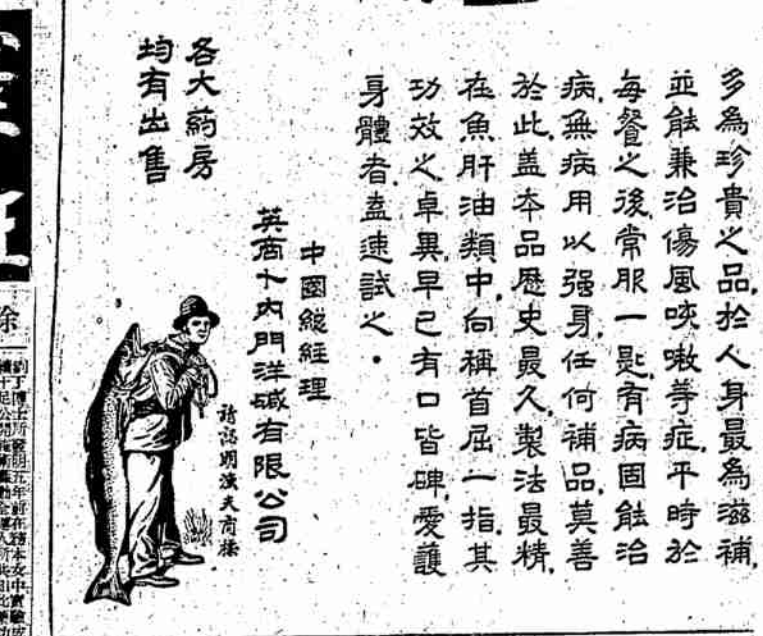 多為珍貴之品.於人身最為滋補.
並能兼治傷風咳嗽等症.平時於
每餐之後.常服一匙.有病固能治
病.無病用以强身.任何補品.莫善
於此.盖本品歷史最久.製法最精.
在魚肝油類中.向稱首屈一指.其
功效之卓異.早已有口皆碑.愛護
身體者.盍速試之.
中國總經理
英商卜內門洋碱有限公司
請認明漁夫商標
各大葯房
均有出售
除